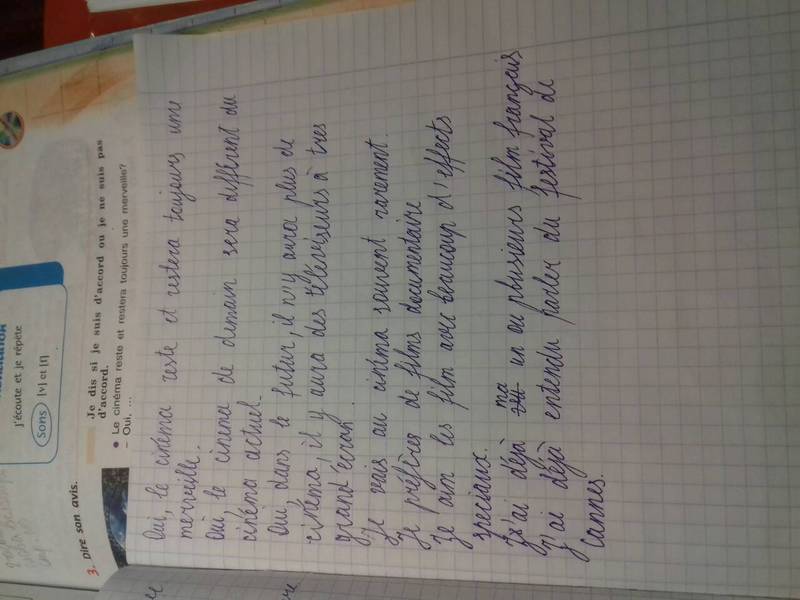 J'écoute et je répète
sons [v] et [f]
3. Dire son avis.
Je dis si je suis d'accord ou je ne suis pas
d'accord.
• Le cinéma reste et restera toujours une merveille?
– Oui, ...
Oui, le cinéma reste et restera toujours une
merveille.
Oui le cinema de demain sera différent du
cinéma actuel.
Oui, dans le futur, il n'y aura plus de
cinéma, il y aura des téléviseurs à tres
grand écran.
Je vais au cinéma souvent rarement.
Je préfères de films documentaire
Je aim les film avec beaucoup d'effects
speciaux.
J'ai déjà ma un ou plusieurs film français
J'ai déjà entendu parler du festival de
Cannes.